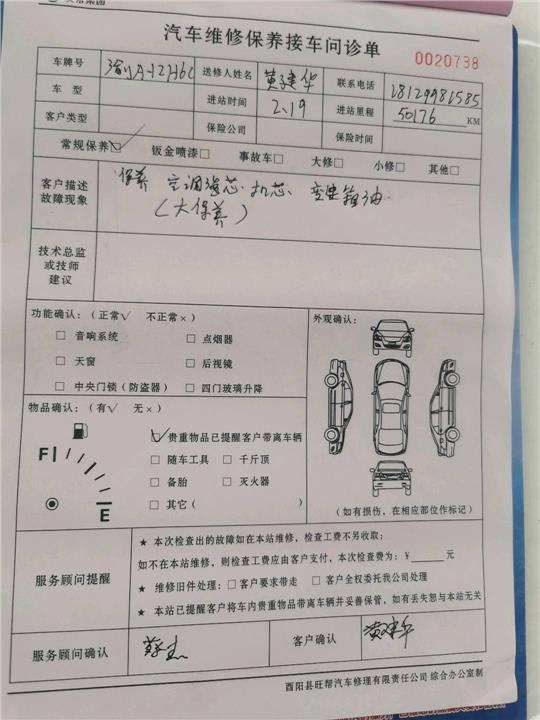 汽车维修保养接车问诊单
0020738
车牌号 送修人姓名 黄建华 联系电话 18129981585
车 型 进站时间 2.19 进站里程 50176 KM
客户类型 保险公司 保险时间
常规保养☑ 钣金喷漆□ 事故车□ 大修□ 小修□ 其他□
客户描述故障现象 保养 空调滤芯.机芯. 变速箱油
(大保养)
技术总监
或技师
建议
功能确认:(正常√ 不正常×) 外观确认:
□ 音响系统 □ 点烟器
□ 天窗 □ 后视镜
□ 中央门锁(防盗器) □ 四门玻璃升降
物品确认:(有√ 无×)
☑ 贵重物品已提醒客户带离车辆
F E
□ 随车工具 □ 千斤顶
□ 备胎 □ 灭火器
□ 其它( )
(如有损伤,在相应部位作标记)
服务顾问提醒
★ 本次检查出的故障如在本站维修,检查工费不另收取;
如不在本站维修,则检查工费应由客户支付,本次检查费为:¥______元
★ 维修旧件处理:□ 客户要求带走 □ 客户全权委托我公司处理
★ 本站已提醒客户将车内贵重物品带离车辆并妥善保管,如有丢失恕与本站无关
服务顾问确认 客户确认 黄建华
酉阳县旺帮汽车修理有限责任公司 综合办公室制